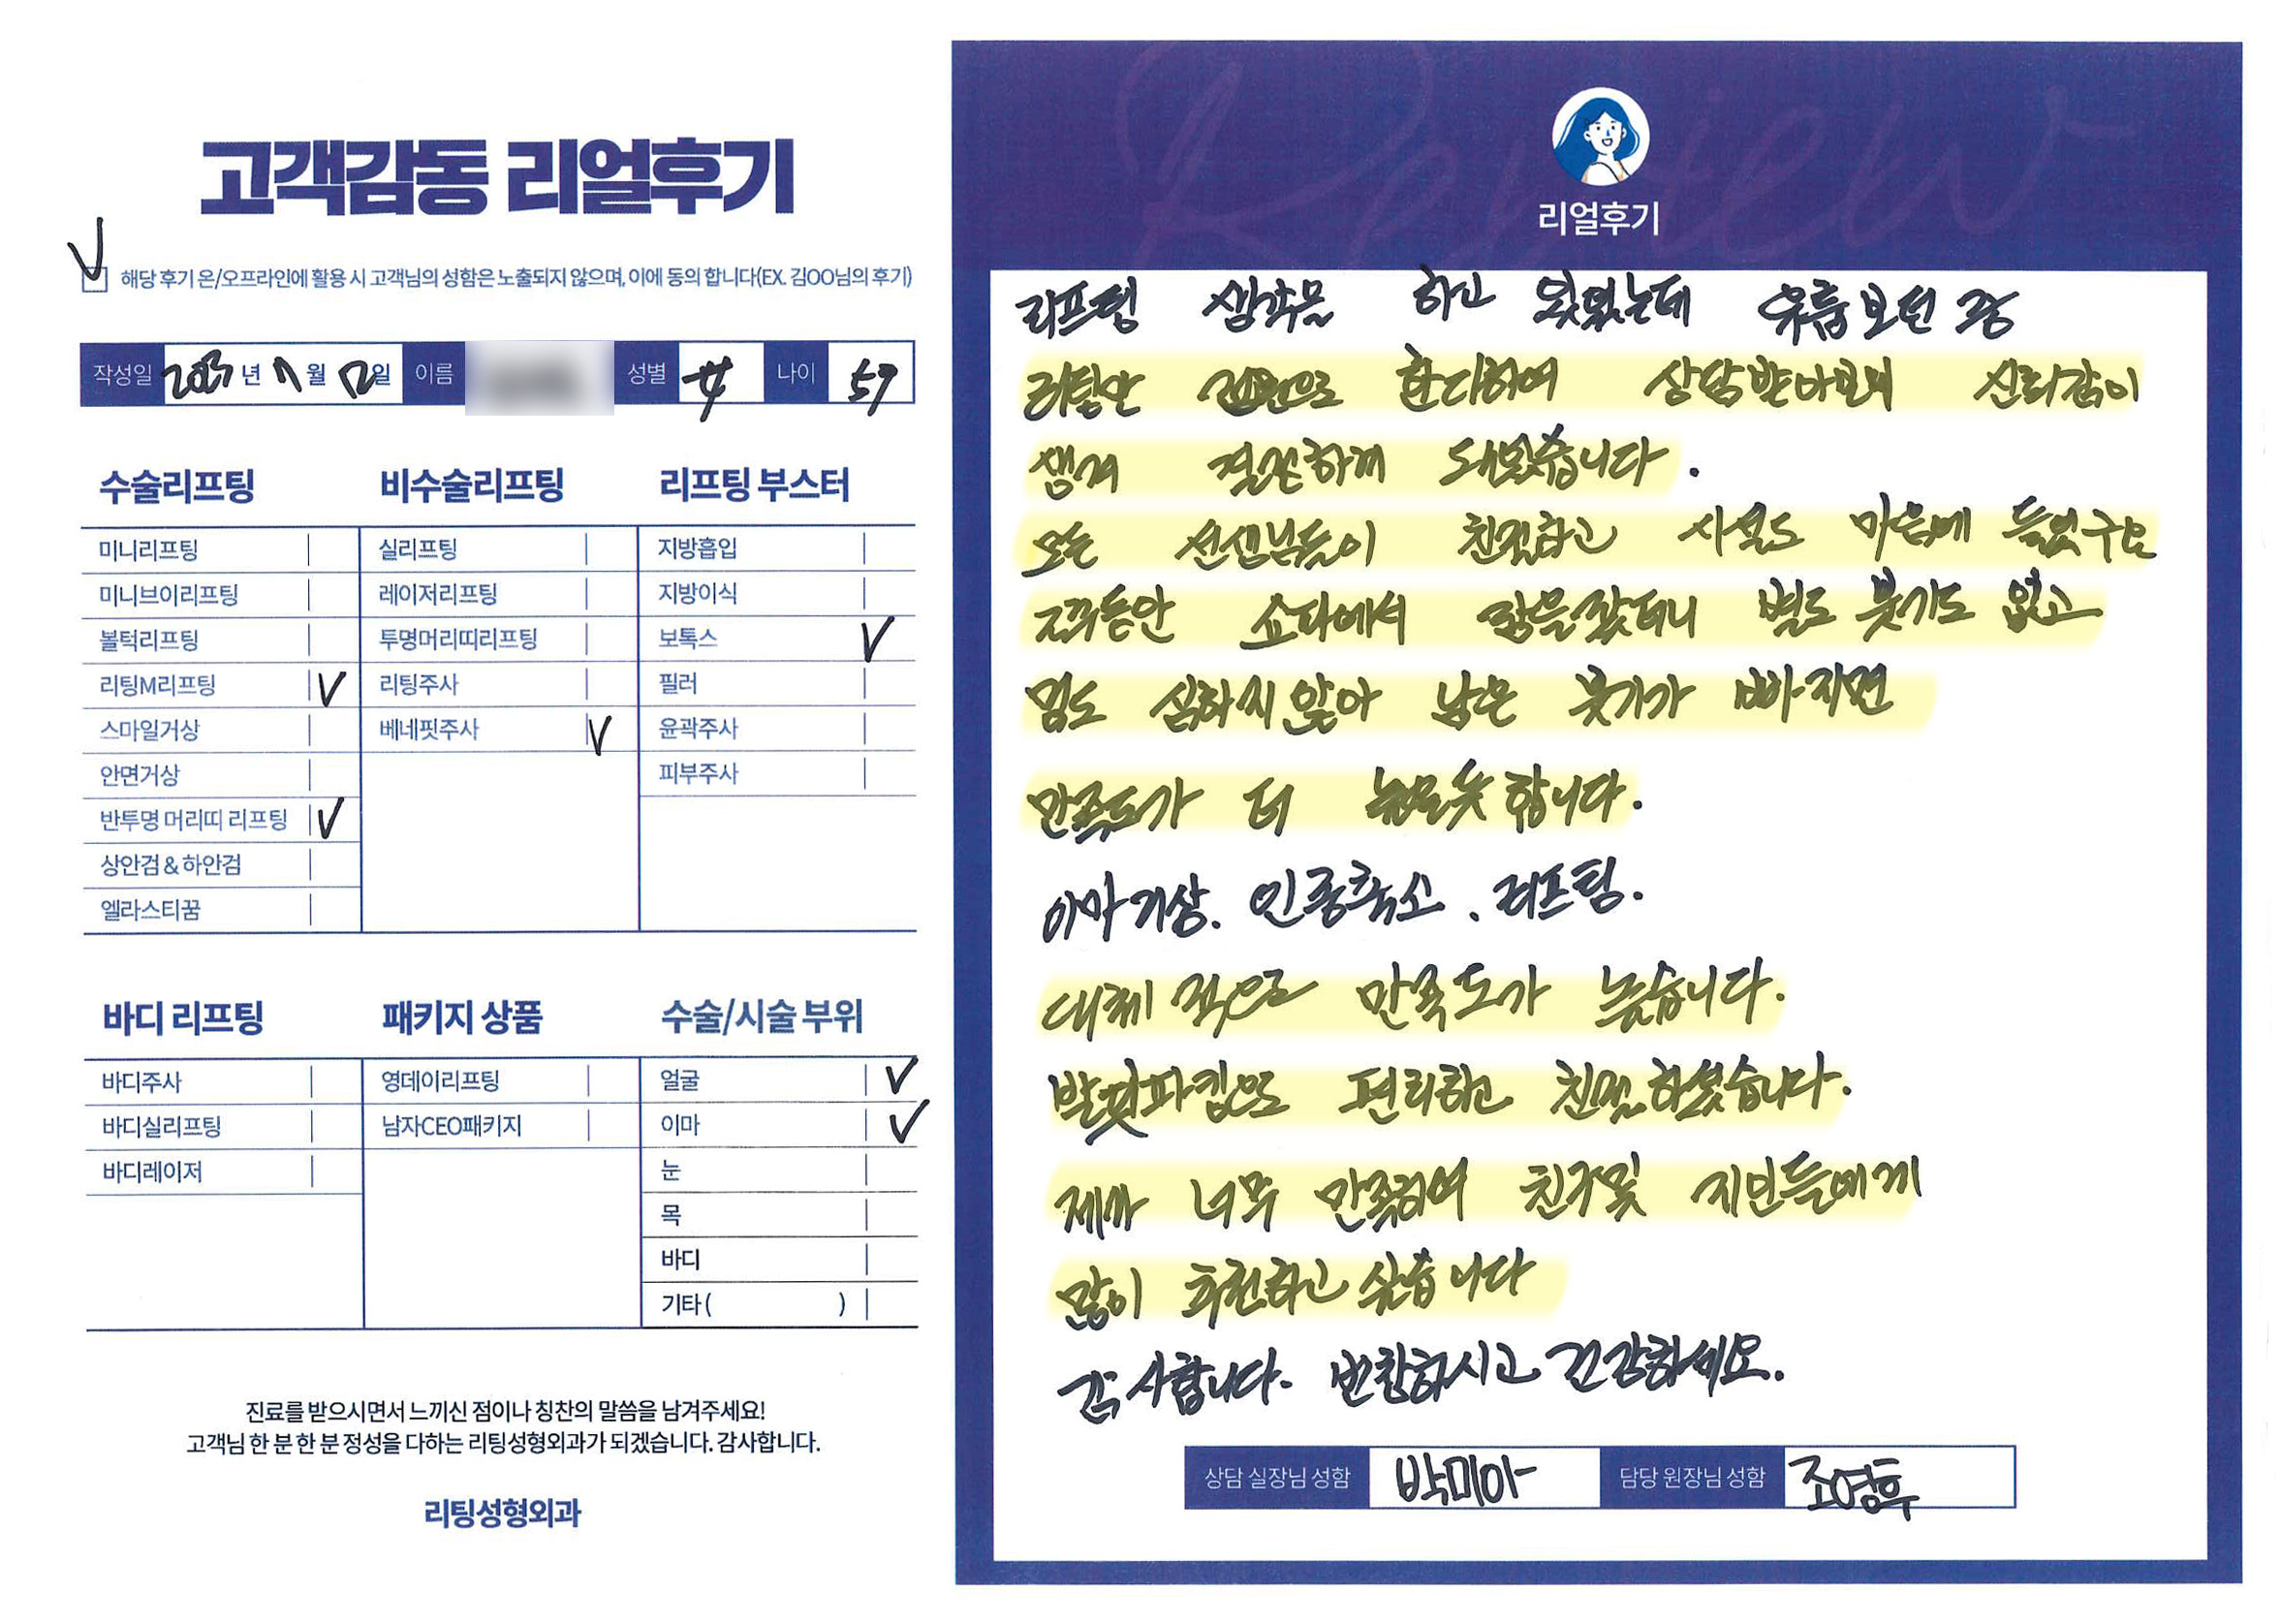 고객감동 리얼후기
해당 후기 온/오프라인에 활용 시 고객님의 성함은 노출되지 않으며, 이에 동의 합니다(EX. 김OO님의 후기)
작성일 2023년 월 12일 이름 성별 女 나이 57
수술리프팅 비수술리프팅 리프팅 부스터
미니리프팅 실리프팅 지방흡입
미니브이리프팅 레이저리프팅 지방이식
볼턱리프팅 투명머리띠리프팅 보톡스 V
리팅M리프팅 V 리팅주사 필러
스마일거상 베네핏주사 V 윤곽주사
안면거상 피부주사
반투명 머리띠 리프팅 V
상안검 & 하안검
엘라스티꿈
바디 리프팅 패키지 상품 수술/시술 부위
바디주사 영데이리프팅 얼굴 V
바디실리프팅 남자CEO패키지 이마 V
바디레이저 눈
목
바디
기타 ( )
진료를 받으시면서 느끼신 점이나 칭찬의 말씀을 남겨주세요!
고객님 한 분 한 분 정성을 다하는 리팅성형외과가 되겠습니다. 감사합니다.
리팅성형외과
Review
리얼후기
리프팅 생각을 하고 있었는데 유튭보던 중
리팅만 전문으로 한다하여 상담받아보니 신뢰감이
생겨 결정하게 되었습니다.
모든 선생님들이 친절하고 시설도 마음에 들었구요
쇼파에서 잠을잤더니 별도 붓기도 없고
멍도 심하지않아 남은 붓기가 빠지면
만족도가 더 높을듯 합니다.
이마거상. 인중축소. 리프팅.
대체적으로 만족도가 높습니다.
발렛파킹도 편리하고 친절하셨습니다.
제가 너무 만족하여 친구및 지인들에게
많이 추천하고 싶습니다
감사합니다. 번창하시고 건강하세요.
상담 실장님 성함 박미아 담당 원장님 성함 조영훈